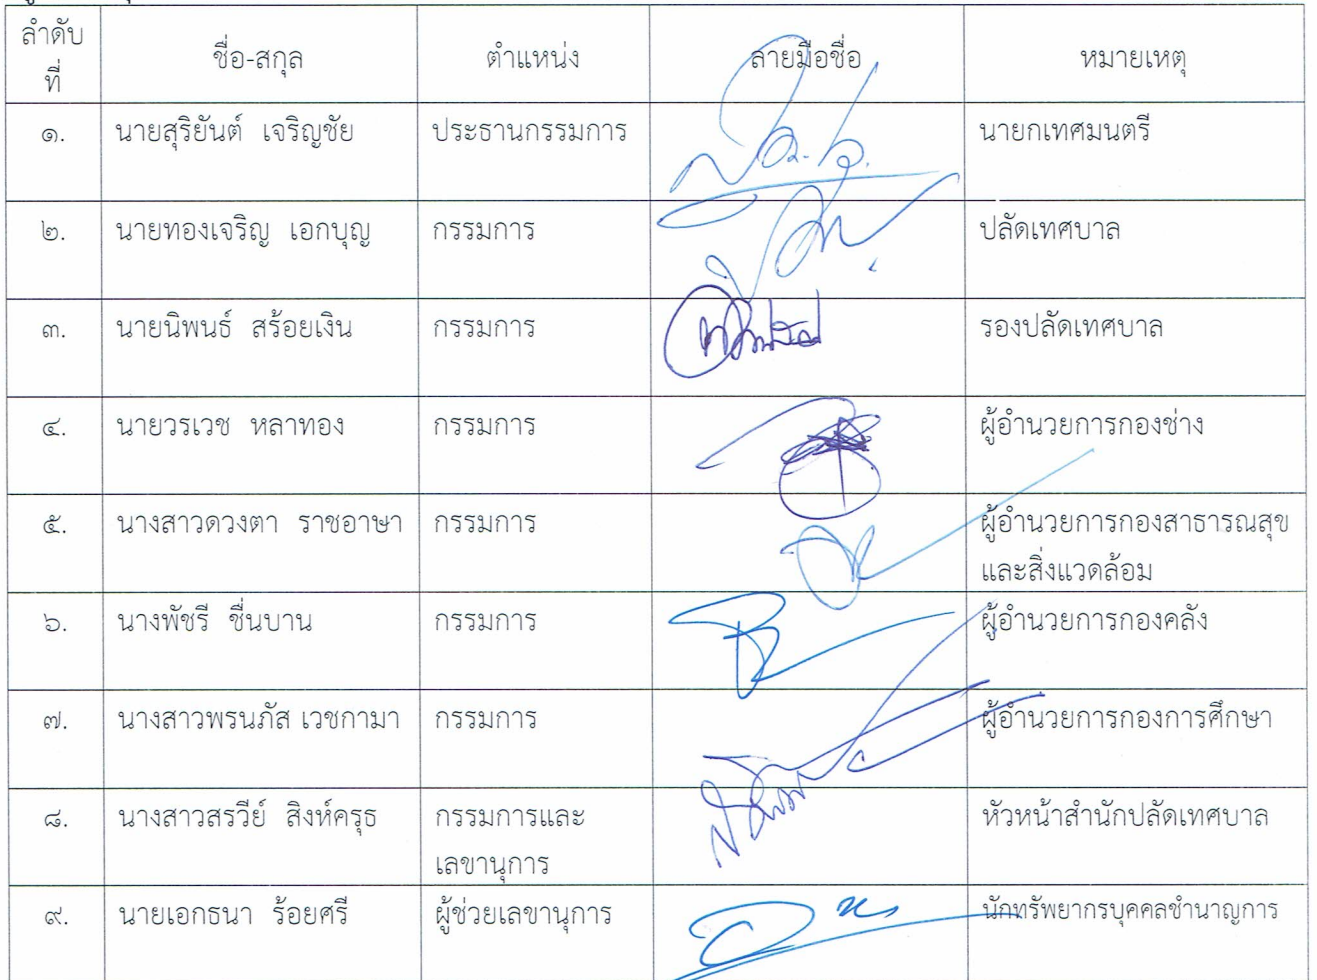 ลำดับ
ที่
ชื่อ-สกุล ตำแหน่ง ลายมือชื่อ หมายเหตุ
๑. นายสุริยันต์ เจริญชัย ประธานกรรมการ นายกเทศมนตรี
๒. นายทองเจริญ เอกบุญ กรรมการ ปลัดเทศบาล
๓. นายนิพนธ์ สร้อยเงิน กรรมการ รองปลัดเทศบาล
๔. นายวรเวช หลาทอง กรรมการ ผู้อำนวยการกองช่าง
๕. นางสาวดวงตา ราชอาษา กรรมการ ผู้อำนวยการกองสาธารณสุข
และสิ่งแวดล้อม
๖. นางพัชรี ชื่นบาน กรรมการ ผู้อำนวยการกองคลัง
๗. นางสาวพรนภัส เวชกามา กรรมการ ผู้อำนวยการกองการศึกษา
๘. นางสาวสรวีย์ สิงห์ครุธ กรรมการและ หัวหน้าสำนักปลัดเทศบาล
เลขานุการ
๙. นายเอกธนา ร้อยศรี ผู้ช่วยเลขานุการ นักทรัพยากรบุคคลชำนาญการ